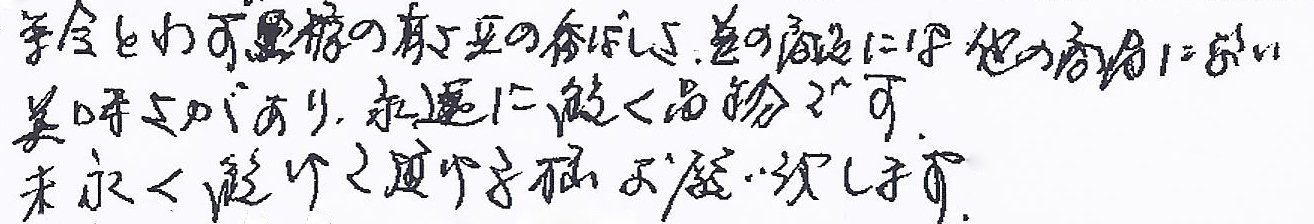 年令とわず黒糖の有さ豆の香ばしさ、並の商品には他の商品にない
美味さがあり、永遠に続く品物です。
末永く続けて頂ける様お願い致します。